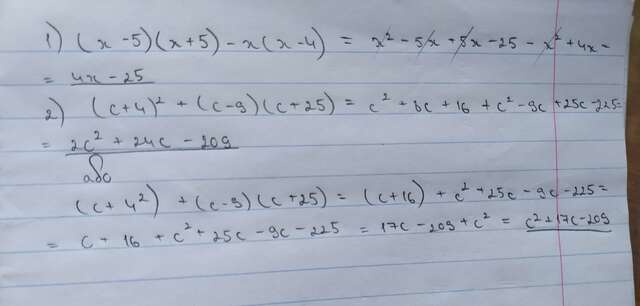 1) (x - 5)(x + 5) - x(x - 4) = x² - 5x + 5x - 25 - x² + 4x =
= 4x - 25
2) (c + 4)² + (c - 9)(c + 25) = c² + 8c + 16 + c² - 9c + 25c - 225 =
= 2c² + 24c - 209
або
(c + 4²) + (c - 9)(c + 25) = (c + 16) + c² + 25c - 9c - 225 =
= c + 16 + c² + 25c - 9c - 225 = 17c - 209 + c² = c² + 17c - 209